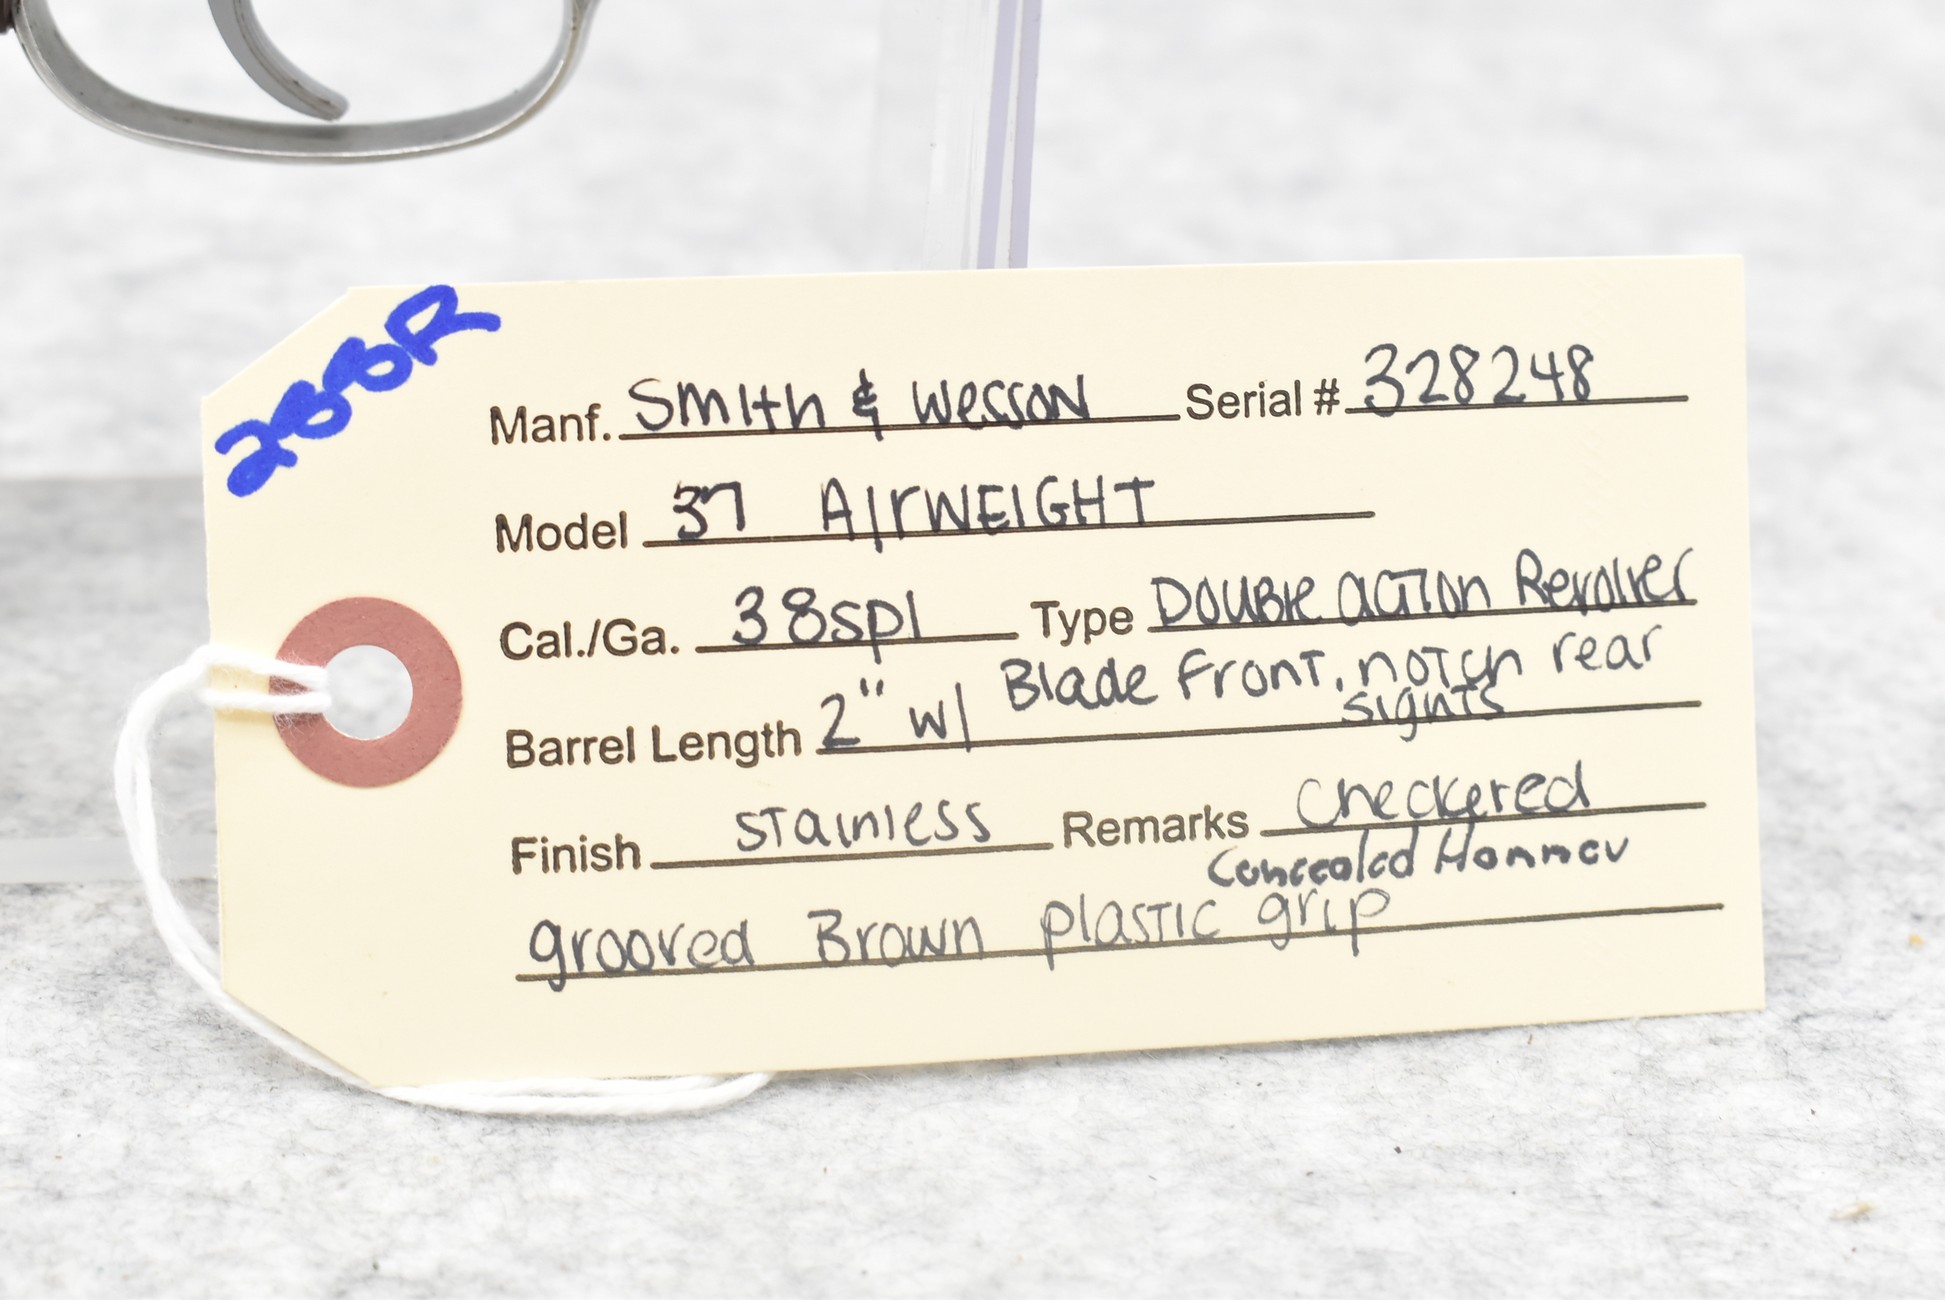 288R
Manf. Smith & Wesson Serial # 328248
Model 37 AIrWEIGHT
Cal./Ga. 38spl Type Double action Revolver
Barrel Length 2" w/ Blade Front, notch rear
sights
Finish stainless Remarks checkered
Concealed Hammer
grooved Brown plastic grip